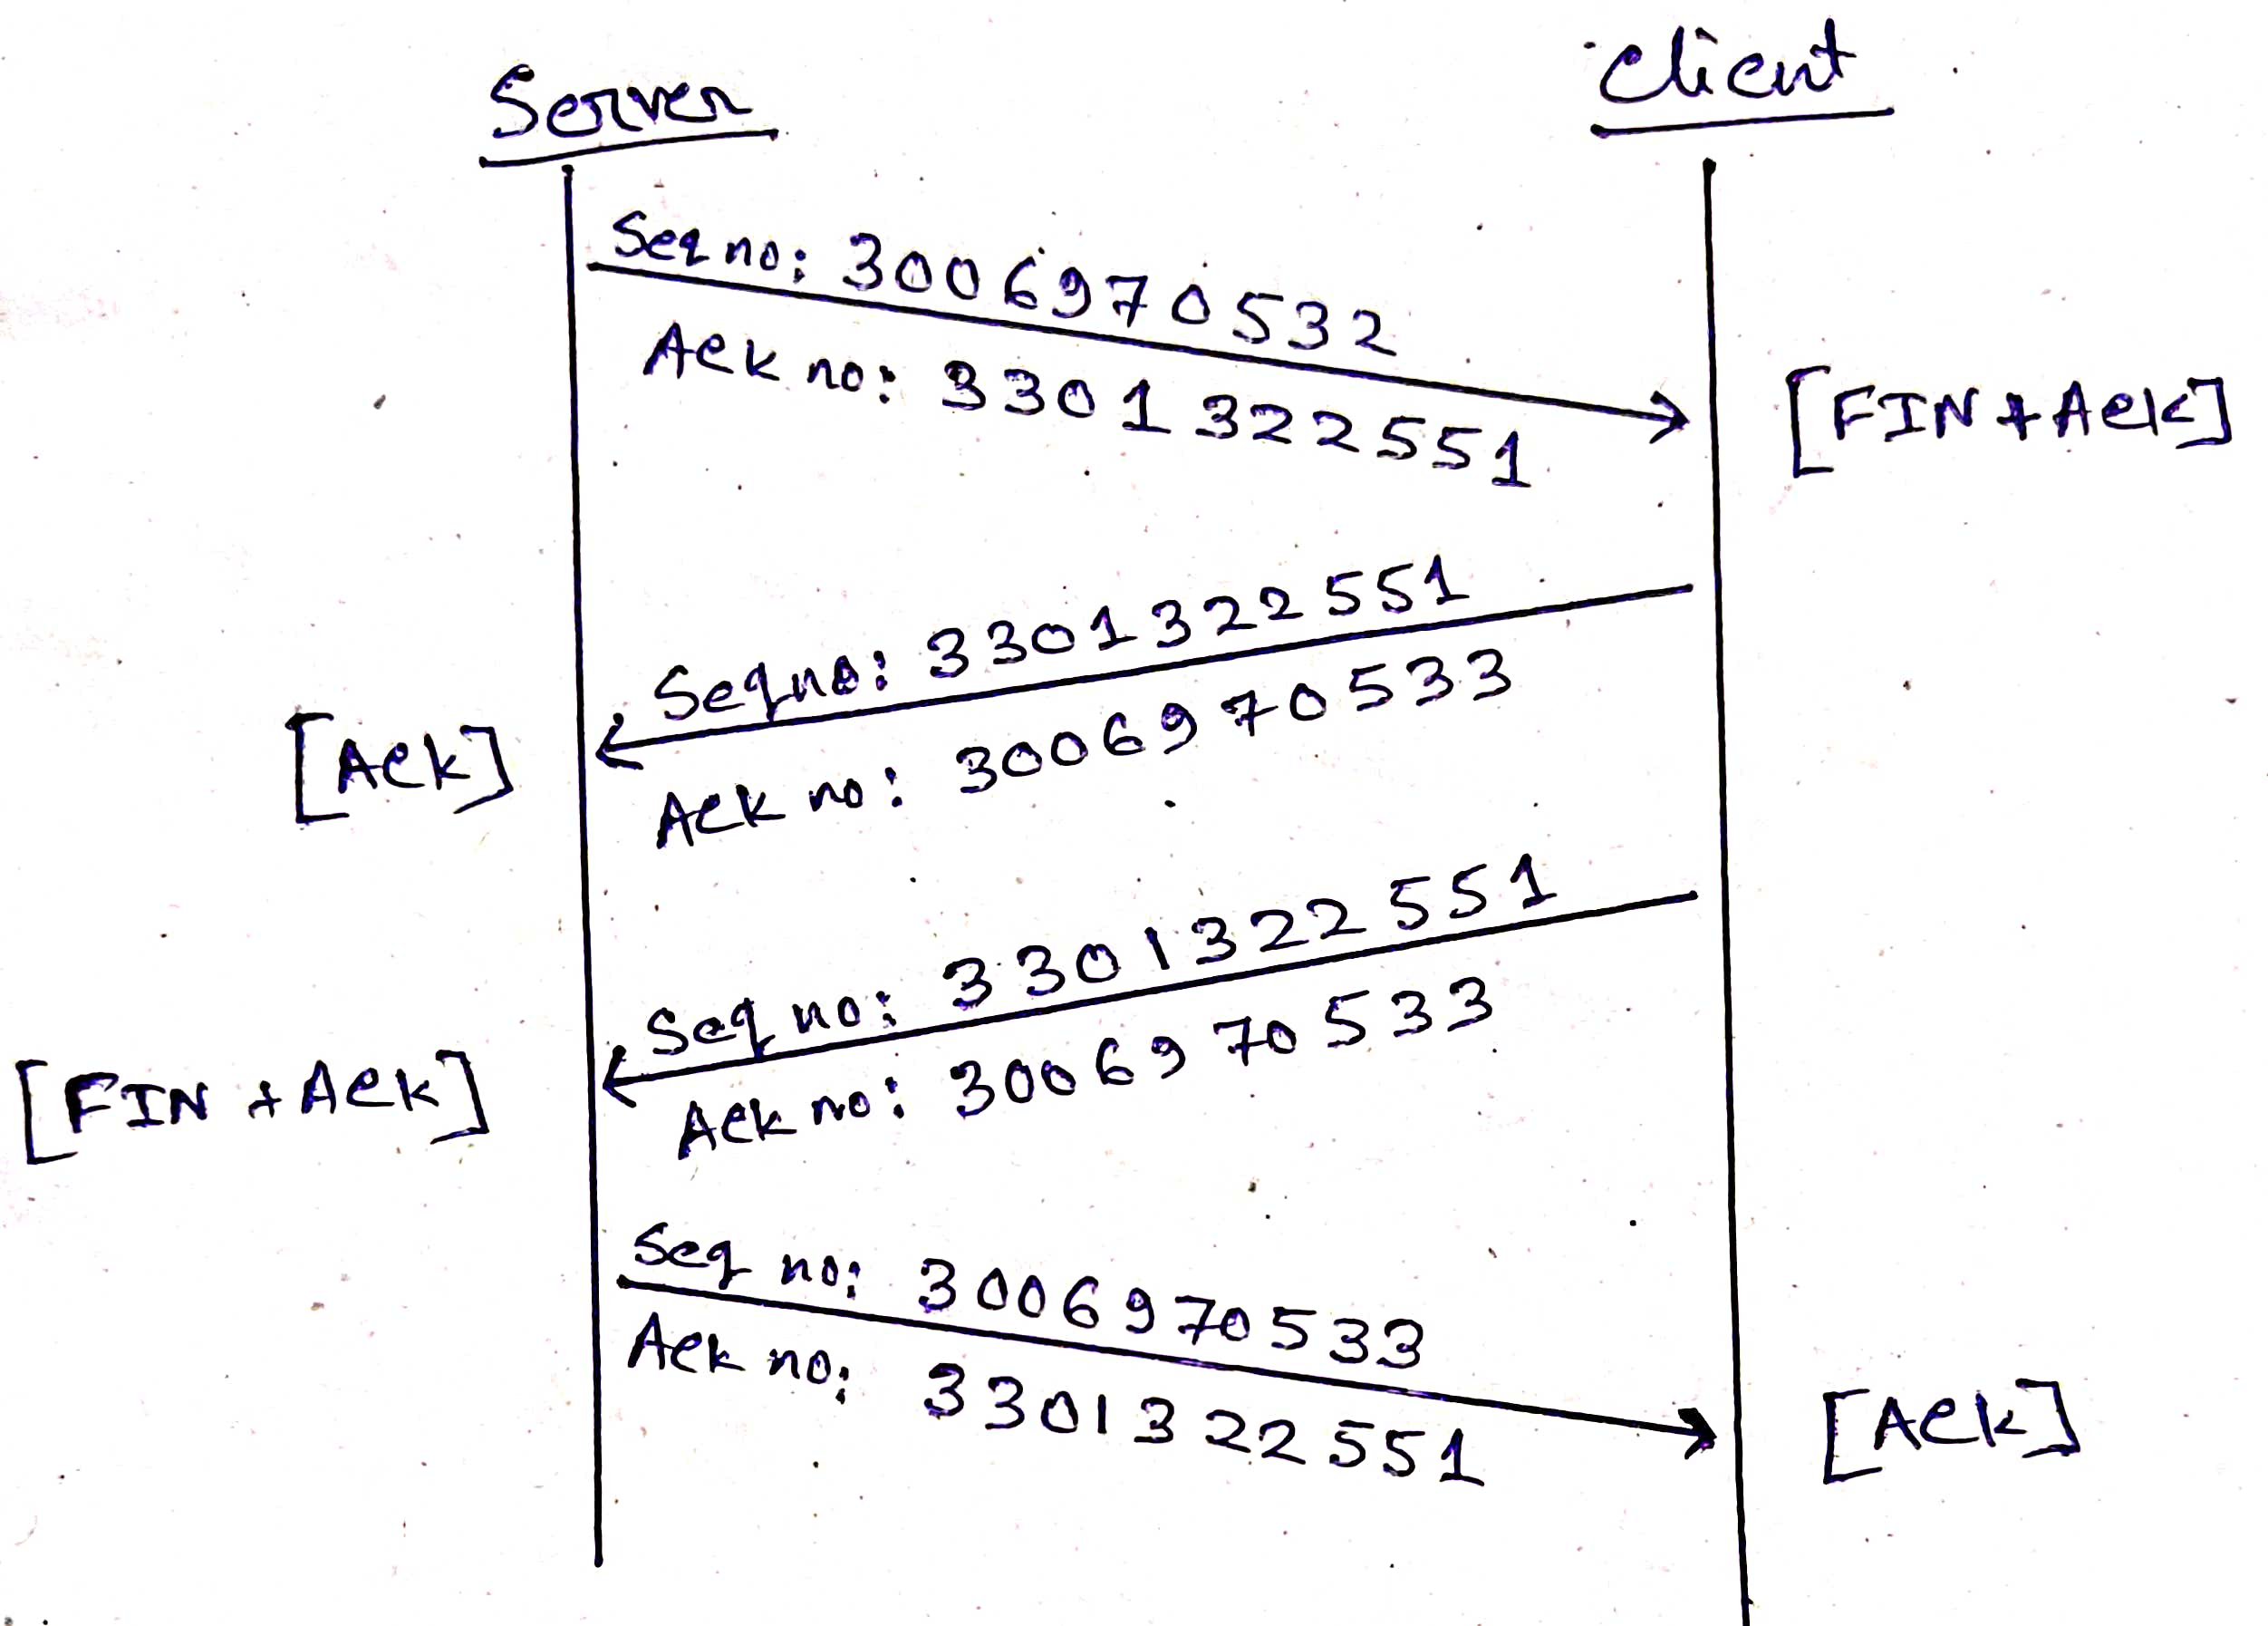 Server
Client
Seq no: 3006970532
Ack no: 3301322551
[FIN + Ack]
Seq no: 3301322551
Ack no: 3006970533
[Ack]
Seq no: 3301322551
Ack no: 3006970533
[FIN + Ack]
Seq no: 3006970533
Ack no: 3301322551
[Ack]